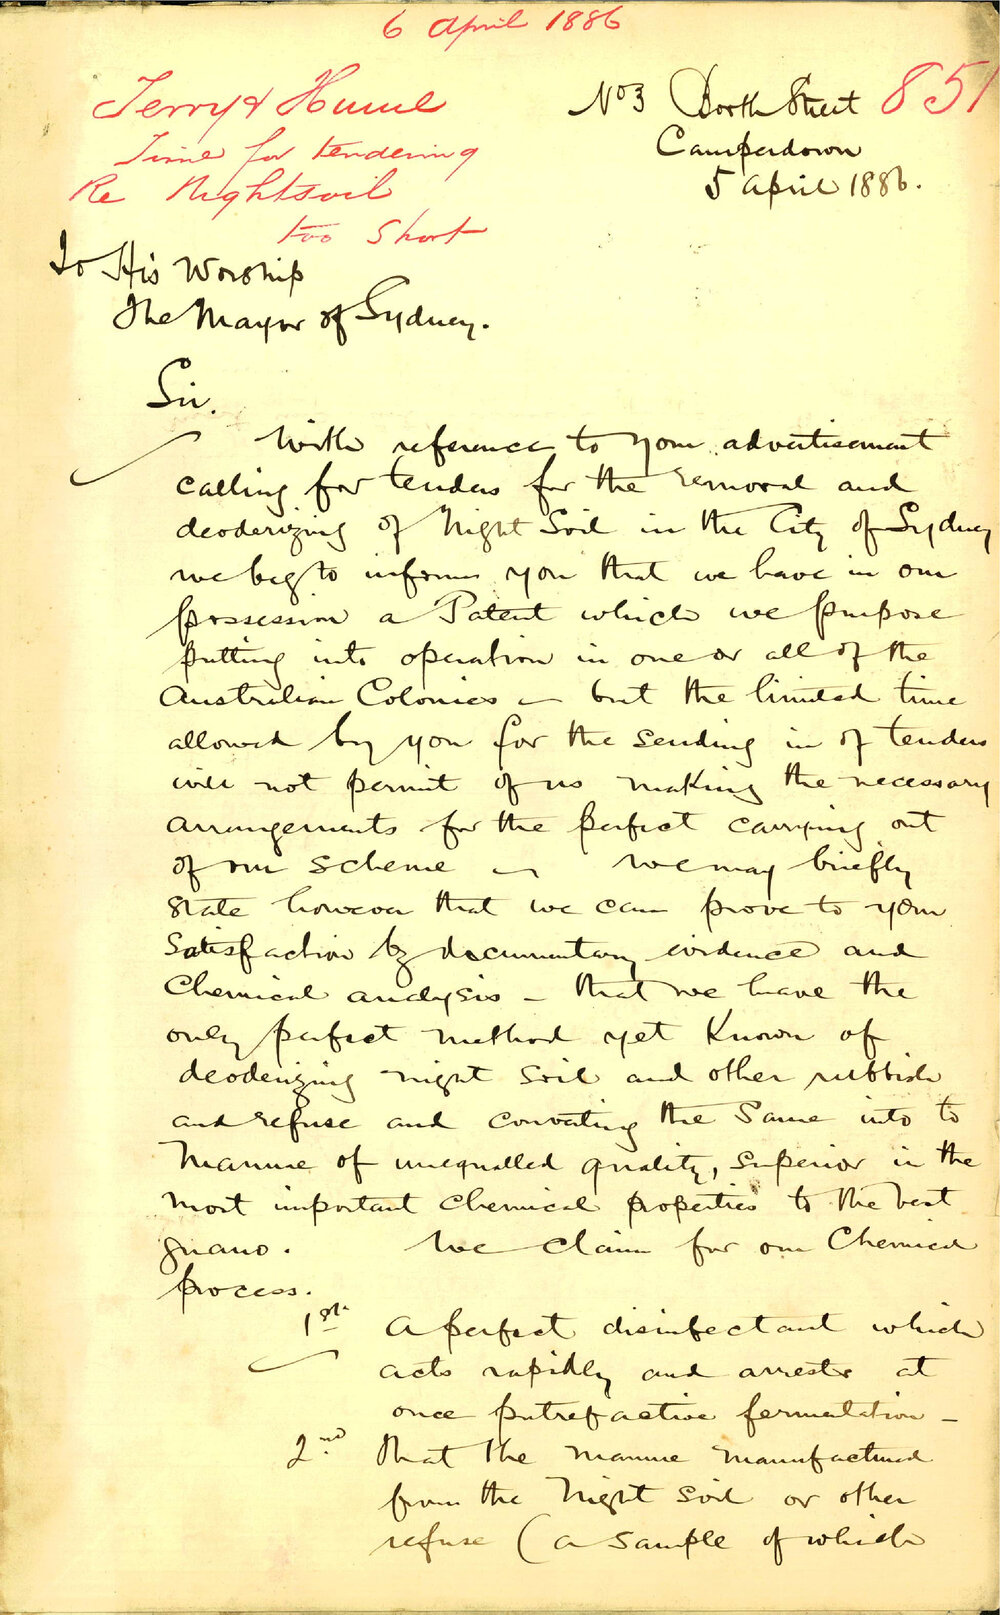 6 April 1886
Terry & Hume
Time for tendering
Re Nightsoil
too Short
851
No 3 Booth Street
Camperdown
5 April 1886.
To His Worship
The Mayor of Sydney.
Sir.
With reference to your advertisement
calling for tenders for the removal and
deoderizing of Night Soil in the City of Sydney
we beg to inform you that we have in our
possession a Patent which we purpose
putting into operation in one or all of the
Australian Colonies – but the limited time
allowed by you for the sending in of tenders
will not permit of us making the necessary
arrangements for the perfect carrying out
of our scheme – we may briefly
state however that we can prove to your
Satisfaction by documentary evidence and
Chemical analysis – that we have the
only perfect method yet Known of
deoderizing night soil and other rubbish
and refuse and converting the Same into to
Manure of unequalled quality, superior in the
most important Chemical properties to the best
guano. We claim for our Chemical
process.
1st A perfect disinfectant which
acts rapidly and arrests at
once putrefactive fermentation –
2nd That the manure manufactured
from the Night Soil or other
refuse (a sample of which